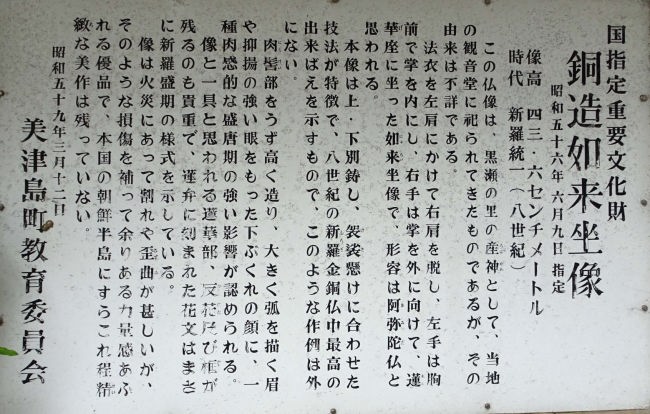 国指定重要文化財
銅造如来坐像
昭和五十六年六月九日指定
像高 四三・六センチメートル
時代 新羅統一(八世紀)
この仏像は、黒瀬の里の産神として、当地
の観音堂に祀られてきたものであるが、その
由来は不詳である。
法衣を左肩にかけて右肩を脱し、左手は胸
前で掌を内にし、右手は掌を外に向けて、蓮
華座に坐った如来坐像で、形容は阿弥陀仏と
思われる。
本像は上・下別鋳し、袈裟懸けに合わせた
技法が特徴で、八世紀の新羅金銅仏中最高の
出来ばえを示すもので、このような作例は外
にない。
肉髻部をうず高く造り、大きく弧を描く眉
や抑揚の強い眼をもった下ぶくれの顔に、一
種肉感的な盛唐期の強い影響が認められる。
像と一具と思われる蓮華部、反花及び框が
残るのも貴重で、蓮弁に刻まれた花文はまさ
に新羅盛期の様式を示している。
像は火災にあって割れや歪曲が甚しいが、
そのような損傷を補って余りある力量感あふ
れる優品で、本国の朝鮮半島にすらこれ程精
緻な美作は残っていない。
昭和五十九年三月十二日
美津島町教育委員会